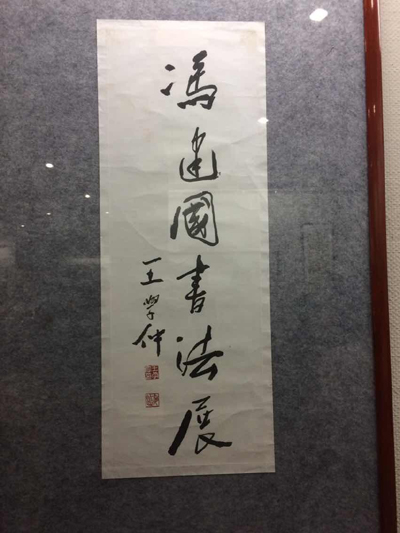 馮建國書法展
王學仲